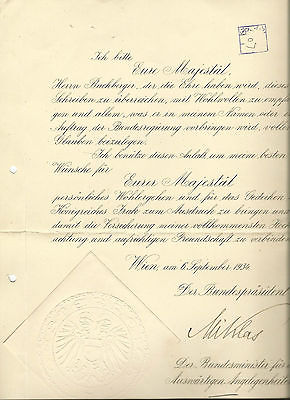 Ich bitte
Eure Majestät,
Herrn Buchberger, der die Ehre haben wird, dieses
Schreiben zu überreichen, mit Wohlwollen zu empfan-
gen und allem, was er in meinem Namen oder im
Auftrag der Bundesregierung vorbringen wird, vollen
Glauben beizulegen.
Ich benütze diesen Anlaß, um meine besten
Wünsche für
Eurer Majestät
persönliches Wohlergehen und für das Gedeihen
Königreiches Irak zum Ausdruck zu bringen und
damit die Versicherung meiner vollkommensten Hoch-
achtung und aufrichtigen Freundschaft zu verbinden
Wien, am 6. September 1934.
Der Bundespräsident
Miklas
Der Bundesminister für
Auswärtigen Angelegenheiten